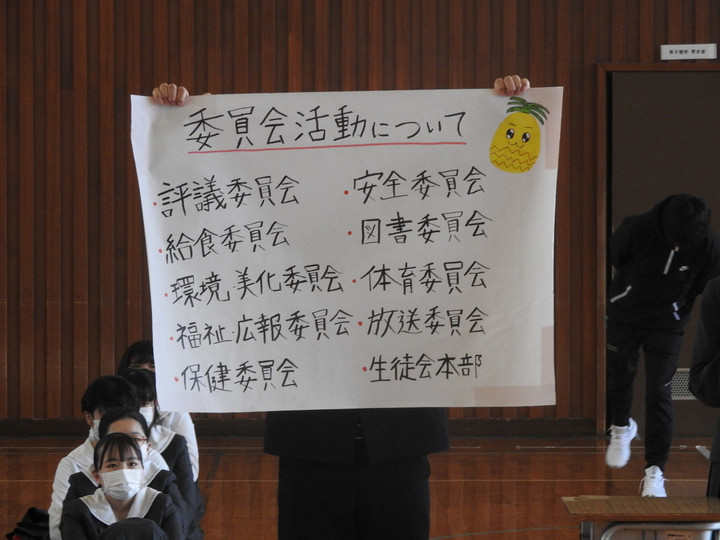 委員会活動について
・評議委員会
・給食委員会
・環境・美化委員会
・福祉・広報委員会
・保健委員会
・安全委員会
・図書委員会
・体育委員会
・放送委員会
・生徒会本部